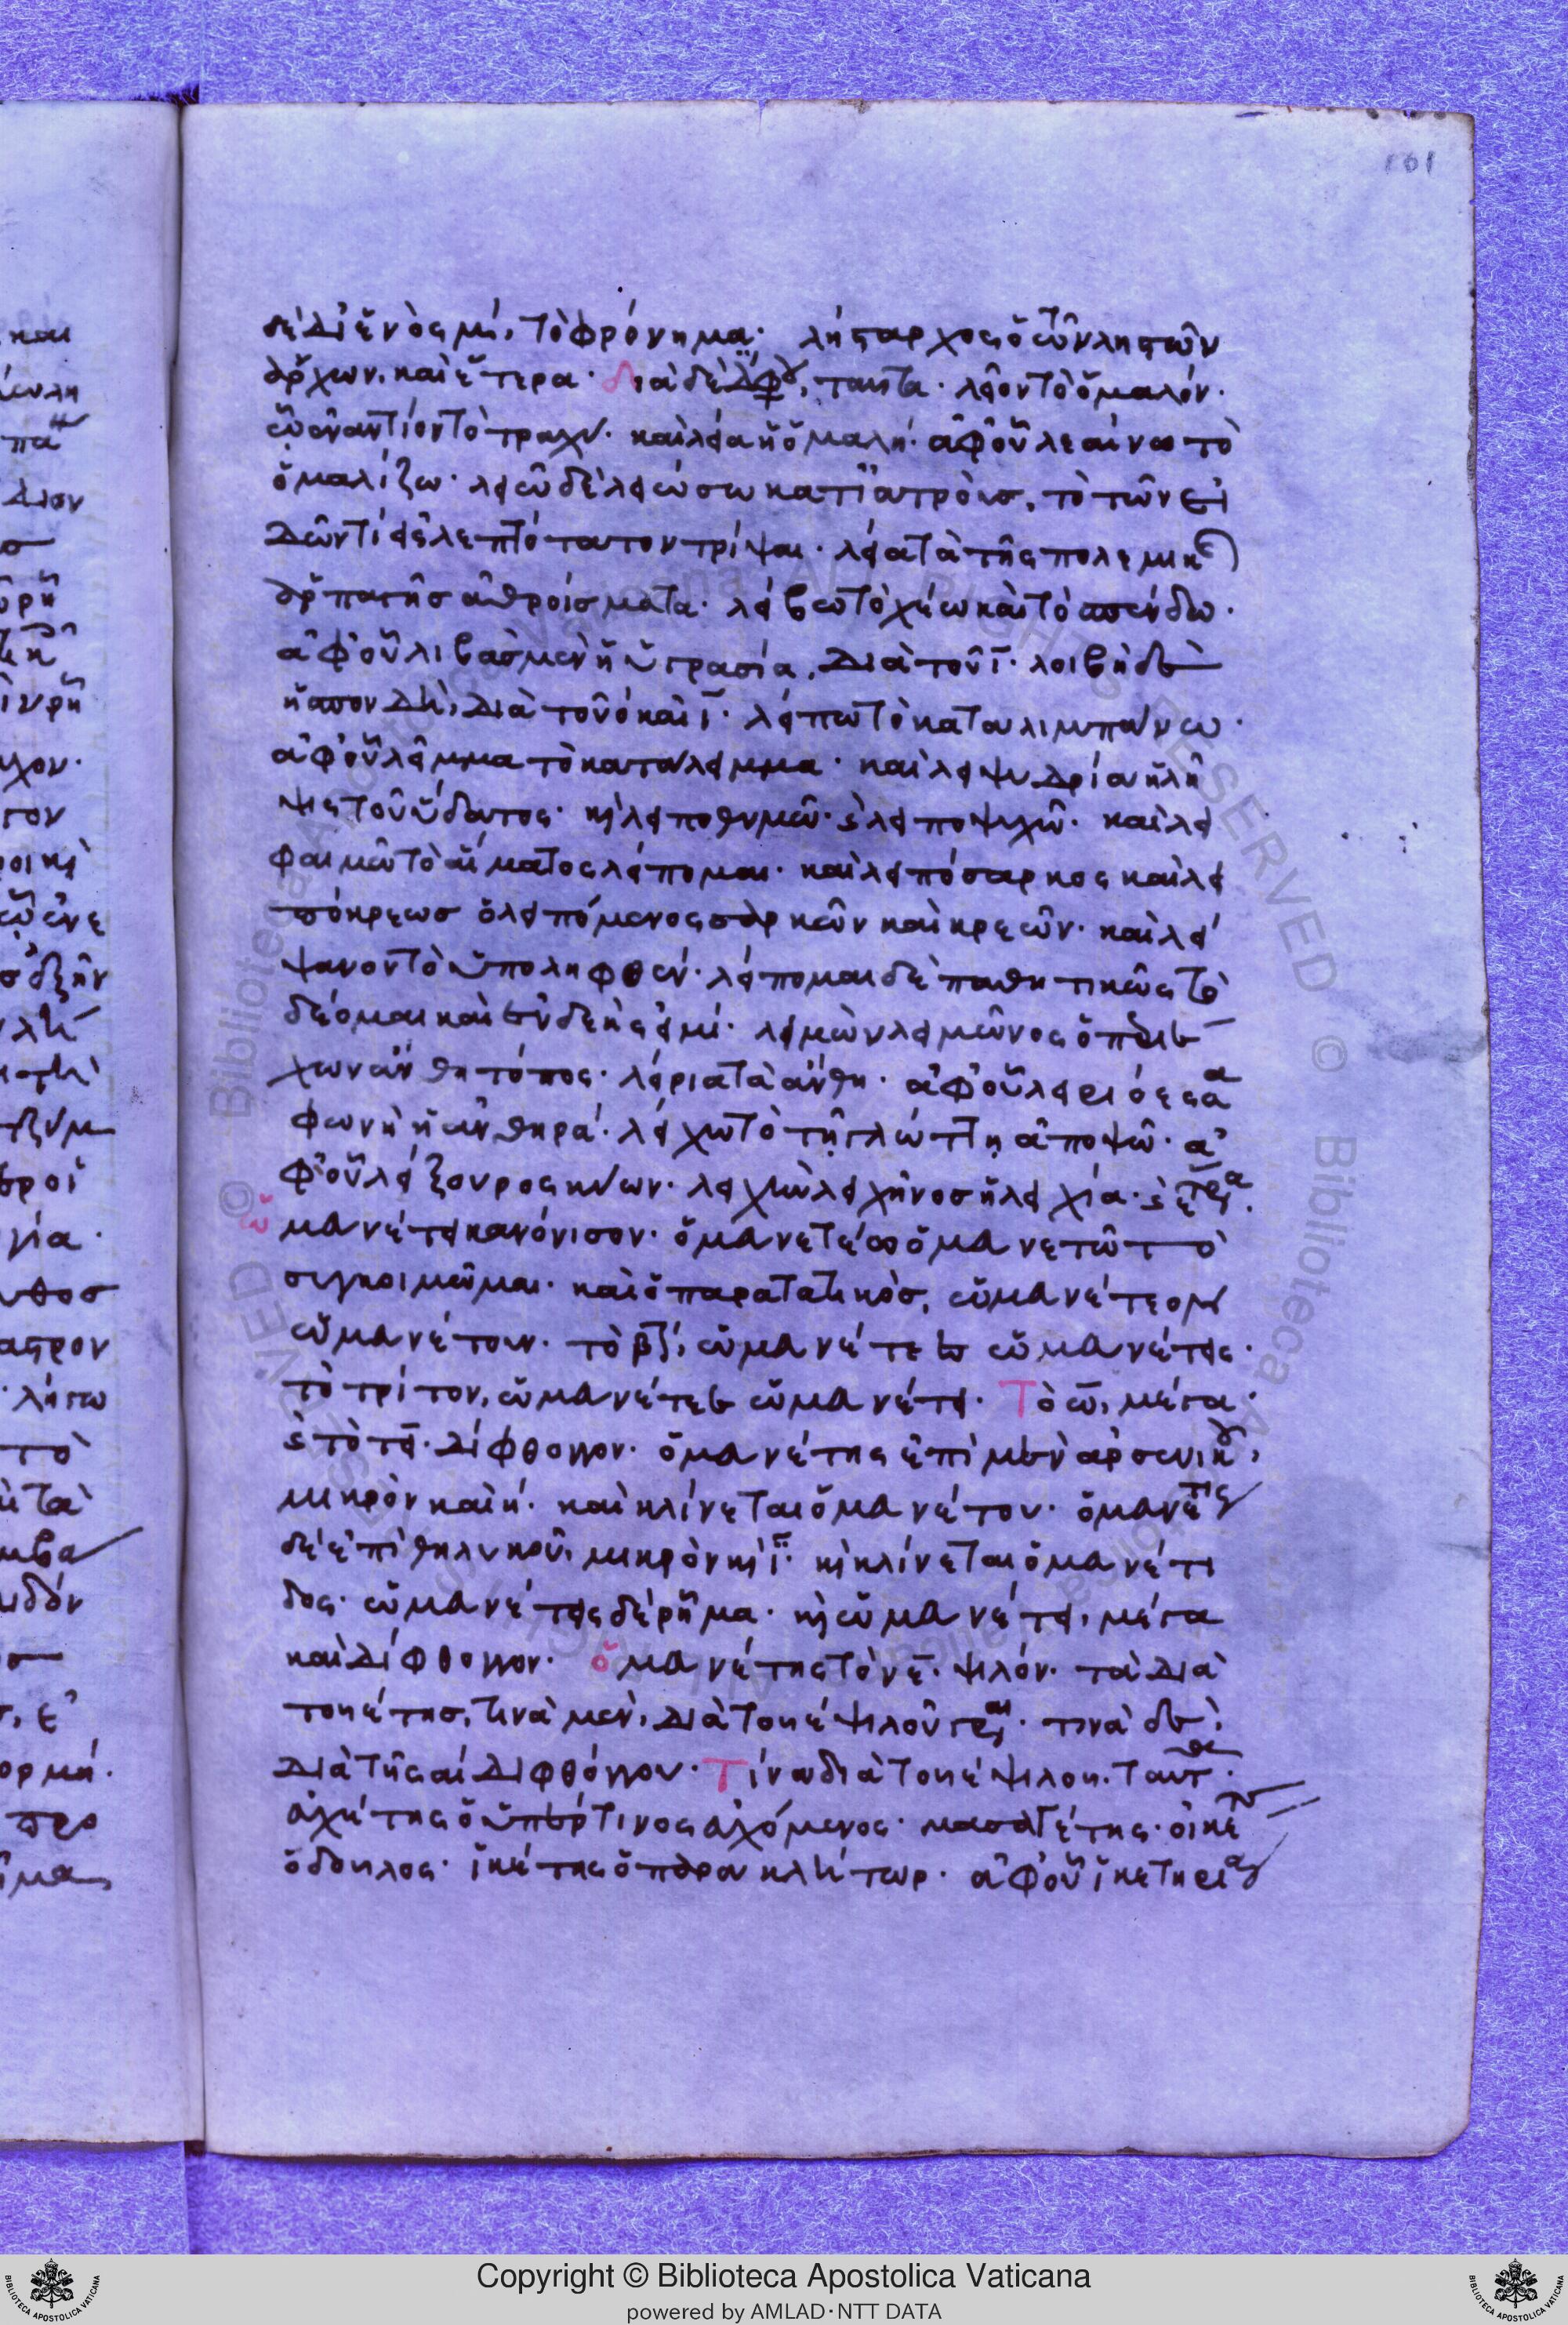 δὲ δι ἑνὸς μ, τὸ φρόνημα· λήσταρχος ὁ τῶν ληστῶν
ἄρχων, καὶ ἕτερα· διὰ δὲ διφ, ταῦτα· λεῖον τὸ ὁμαλόν·
οὗ ἐναντίον τὸ τραχύ· καὶ λεία ἡ ὁμαλή· ἀφ' οὗ λεαίνω τὸ
ὁμαλίζω· λειῶ δὲ λειώσω κατ ἰατροὺς, τὸ τῶν εἰ
δῶν τι εἰς λεπτότατον τρίψαι· λεία τὰ τῆς πολεμικ
ἁρπαγῆς ἀθροίσματα· λείβω τὸ χέω καὶ τὸ σπένδω·
ἀφ' οὗ λιβὰς μὲν ἡ ὑγρασία, διὰ τοῦ ι· λοιβὴ δὲ
ἡ σπονδὴ, διὰ τοῦ ο καὶ ι· λείπω τὸ καταλιμπάνω·
ἀφ' οὗ λεῖμμα τὸ κατάλειμμα· καὶ λειψυδρία ἡ λεῖ
ψις τοῦ ὕδατος· καὶ λειποθυμῶ· καὶ λειποψυχῶ· καὶ λει
φαιμῶ τὸ αἵματος λείπομαι· καὶ λειπόσαρκος καὶ λει
πόκρεως ὁ λειπόμενος σαρκῶν καὶ κρεῶν· καὶ λεί
ψανον τὸ ὑπολειφθέν· λείπομαι δὲ παθητικῶς τὸ
δέομαι καὶ ἐνδεής εἰμι· λειμὼν λειμῶνος ὁ περιέ
χων ἄνθη τόπος· λείρια τὰ ἄνθη· ἀφ' οὗ λειριόεσσα
φωνὴ ἡ ἀνθηρά· λείχω τὸ τῇ γλώττῃ ἀποψῶ· ἀ
φ' οὗ λείξουρος κύων· λειχὴν λειχῆνος ἡ λειχία· καὶ ἕτερα·
ὠμανέτει κανόνισον· ὁμανετέω ὁμανετῶ τὸ
συγκοιμῶμαι· καὶ ὁ παρατατικὸς, ὠμανέτεον
ὠμανέτουν· τὸ β, ὠμανέτεες ὠμανέτεις·
τὸ τρίτον, ὠμανέτεε ὠμανέτει· Τὸ ω, μέγα·
καὶ τὸ τει· δίφθογγον· ὁμανέτης ἐπὶ μὲν ἀρσενικοῦ,
μικρὸν καὶ η· καὶ κλίνεται ὁμανέτου· ὁμανέτις
δὲ ἐπὶ θηλυκοῦ, μικρὸν καὶ ι· καὶ κλίνεται ὁμανέτι
δος· ὠμανέτεις δὲ ῥῆμα· καὶ ὠμανέτει, μέγα
καὶ δίφθογγον· ὁμανέτης τὸ νε· ψιλόν· τὰ διὰ
τοῦ έτης, τινὰ μὲν, διὰ τοῦ ε ψιλοῦ γράφεται· τινὰ δὲ,
διὰ τῆς αι διφθόγγου· Τίνα διὰ τοῦ ε ψιλοῦ. ταῦτα·
ἀχέτης ὁ ὑπέρ τινος ἀχόμενος· οἰκέτης
ὁ δοῦλος· ἱκέτης ὁ παρακλήτωρ· ἀφ' οὗ ἱκετηρία